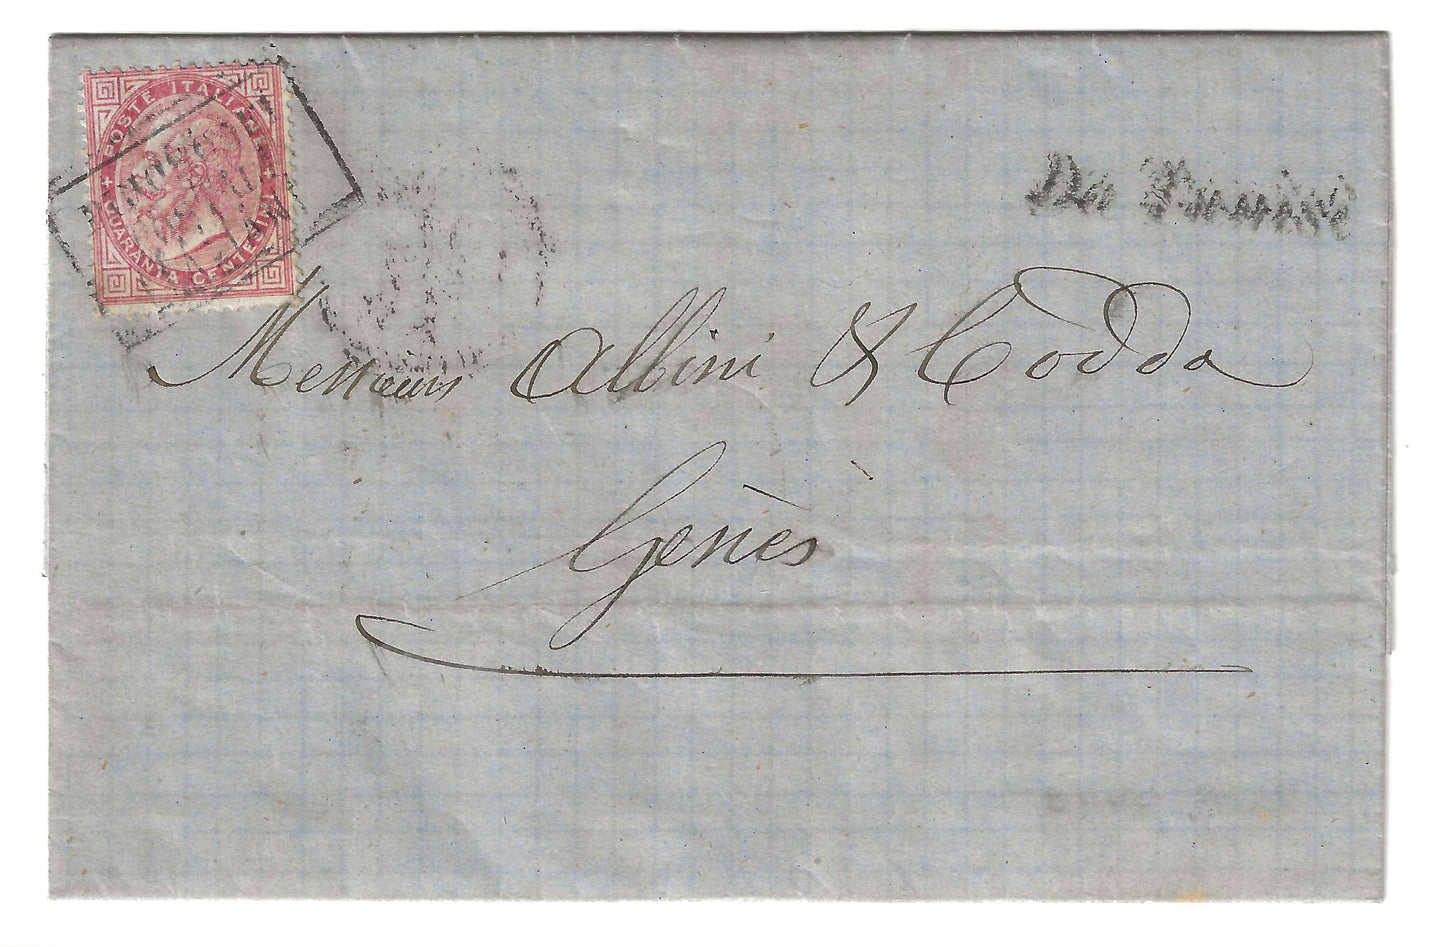 POSTE ITALIANE
QUARANTA CENTESIMI
Da Tunisi
Messieurs Albini & Codda
Gênes